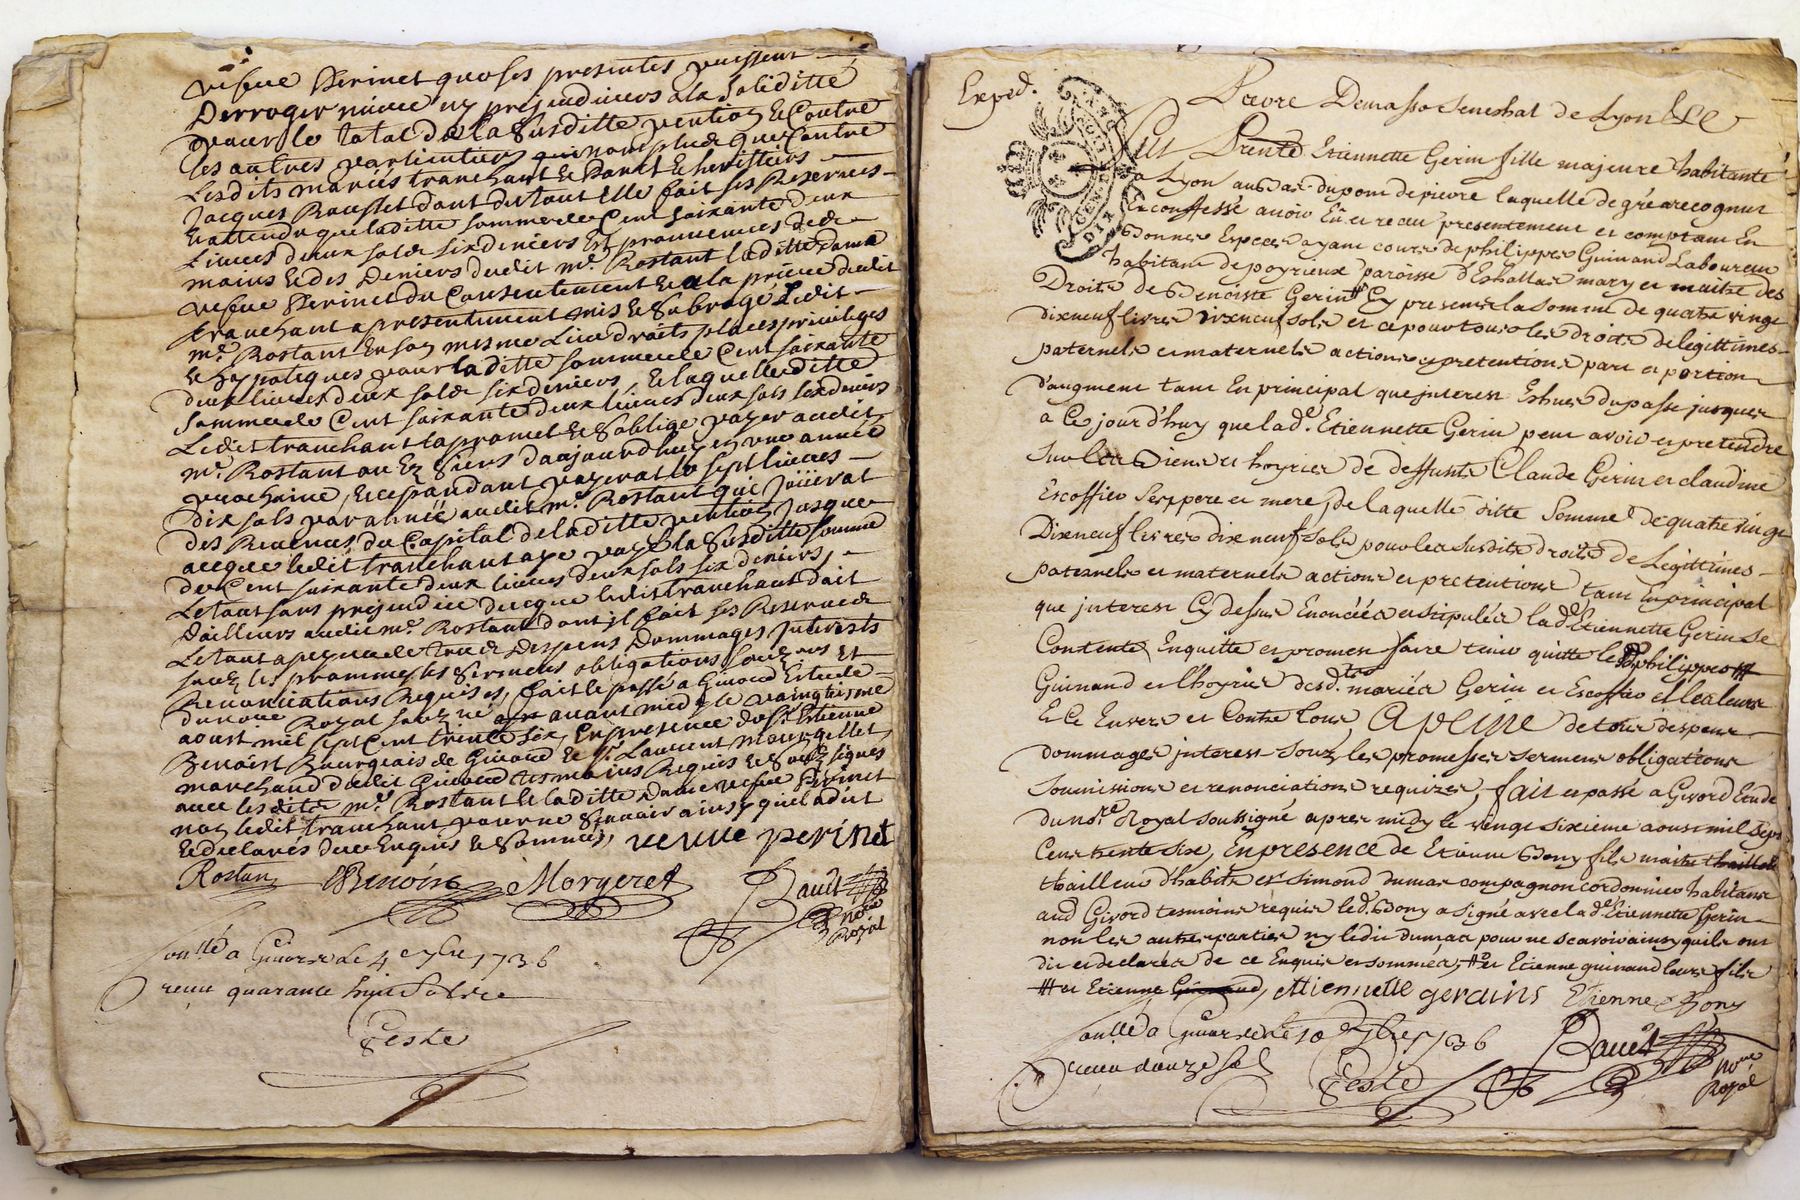 vefue Perinet que ses presentes puissent
Derroger nivue ny prejeudiciers a la Soliditté
pour le total de la Susditte pention & Contre
les autres particuliers qui nont plus que Contre
Lesdits mariés tranchant & Danct & heritiers
Jacques Rousset dont du tout elle fait ses Reserves
& attendu que laditte somme de Cent soixante deux
Livres deux sols six deniers Est prouvenues de de
mains & des Deniers dudit me. Rostant laditte dame
vefue Perinet du Consentement & a la priere dudit
tranchant a presentement mis & Subrogé Ledit
me. Rostant En son mesme Lieu droits places privileges
& hypoteques pour laditte somme de Cent soixante
deux livres deux sols six deniers, & laquelle ditte
Somme de Cent soixante deux livres deux sols six deniers
Ledit tranchant a promet & S'oblige payer audit
me. Rostant ou Ez Siens d'aujourdhuy en une année
prochaine, & cependant payerat les sept livres
dix sols par année audit me. Rostant qui joüirat
des Revenus du Capital de laditte pention jusque
acque ledit tranchant aye payé la Susditte somme
de Cent soixante deux livres deux sols six deniers,
Le tout sans prejeudice de ce que ledit tranchant doit
D'ailleurs audit me. Rostant dont il fait ses Reserves
Le tout a peyne de tous Despens Dommages Interests
souz les prommesses sermens obligations soumons Et
Renonciations Requises, fait & passé a Givord Estude
du nore. Royal souzné avant midy le vaingtiesme
aoust mil sept cent trente six, En presence de sr. Etienne
Benoist Bourgeois de Givord & sr. Laurent Mourgellet
marchand dudit Givord tesmoins Requis & souzsignes
avec lesdits me. Rostant & laditte Dame vefue Perinet
non ledit tranchant pour ne Scavoir ainsy quel a dit
& declarés de ce Enquis & Sommés, veuue perinet
Rostan Benoist Morgeret Bault
no.re Royal
Conllé a Givors Le 4 e 7bre 1736
recu quarante huit Sols
Teste
Exped.
GEN. DE LYON
Pavre Demasso Seneshal de Lyon &c
Fut Prente Etiennette Gerin fille majeure habitante
a Lyon au Bas du pont de pierre laquelle de gré a recognut
& confessé avoir Eu et receu presentement et comptant En
Bonnes Especes ayant cours de philippes Guinand Laboureur
habitant de poyrieux paroisse d'Eshallas mary et maitre des
Droits de Benoiste Gerin # Cy present la somme de quatre vingt
dix neuf livres dix neuf sols et ce pour tous les droits de legittimes
paternels et maternels actions et pretentions part et portion
d'augment tant En principal que interest Eshus du passe jusques
a Ce jourd'huy que lad.e Etiennette Gerin peut avoir et pretendre
Sur les Biens et hoyries de deffunts Claude Gerin et claudine
Escoffier Ses pere et mere, de laquelle ditte Somme de quatre vingt
Dix neuf livres dix neuf sols pour les susdits droits de Legittimes
paternels et maternels actions et pretentions tant En principal
que interest Cy dessus Enoncéés et stipulés la d.e Etiennette Gerin Se
Contente, Enquitte et promet faire tenir quitte led. philippes
Guinand et l'hoyrie desd.tes mariés Gerin et Escoffier et les leurs
& Ce Envers et Contre tous, A peine de tous despens
dommages interest souz les promesses sermens obligations
Soumissions et renonciations requizes, fait et passé a Givord Etude
du no.re Royal soussigné apres midy le vingt sixieme aoust mil Sept
Cent trente six, En presence de Etienne Bony fils maitre thaillol
thailleur d'habits et Simond dumas compagnon cordonnier habitans
aud Givord tesmoins requis led. Bony a signé avec lad.e Etiennette Gerin
non les autres parties ny ledit dumas pour ne scavoir ainsy quils ont
dit et declarés de ce Enquis et sommés, # et Etienne guinand leurs fils
# et Etienne Guinand, ettiennette gerains Etienne Bony
Conllé a Givors le 10 e 7bre 1736 Bault
recu douze sol no.re
Teste Royal